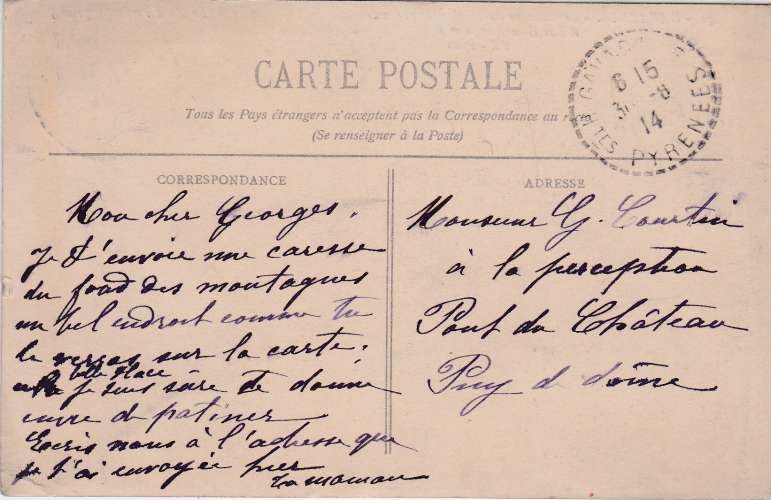 CARTE POSTALE
Tous les Pays étrangers n'acceptent pas la Correspondance au
(Se renseigner à la Poste)
GAVAR
6 15
31 -8
14
HTES PYRENEES
CORRESPONDANCE
Mon cher Georges,
Je t'envoie une caresse
du fond des montagnes
un bel endroit comme tu
le verras sur la carte.
belle place
je suis sûre te donne
envie de patiner
Ecris nous à l'adresse que
je t'ai envoyée hier
Ta maman
ADRESSE
Monsieur G. Courtin
à la perception
Pont du Château
Puy de dôme